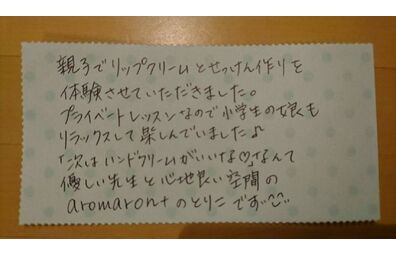 親子でリップクリームとせっけん作りを
体験させていただきました。
プライベートレッスンなので小学生の娘も
リラックスして楽しんでいました♪
「次はハンドクリームがいいな♡」なんて
優しい先生と心地良い空間の
aromaront のとりこです♡